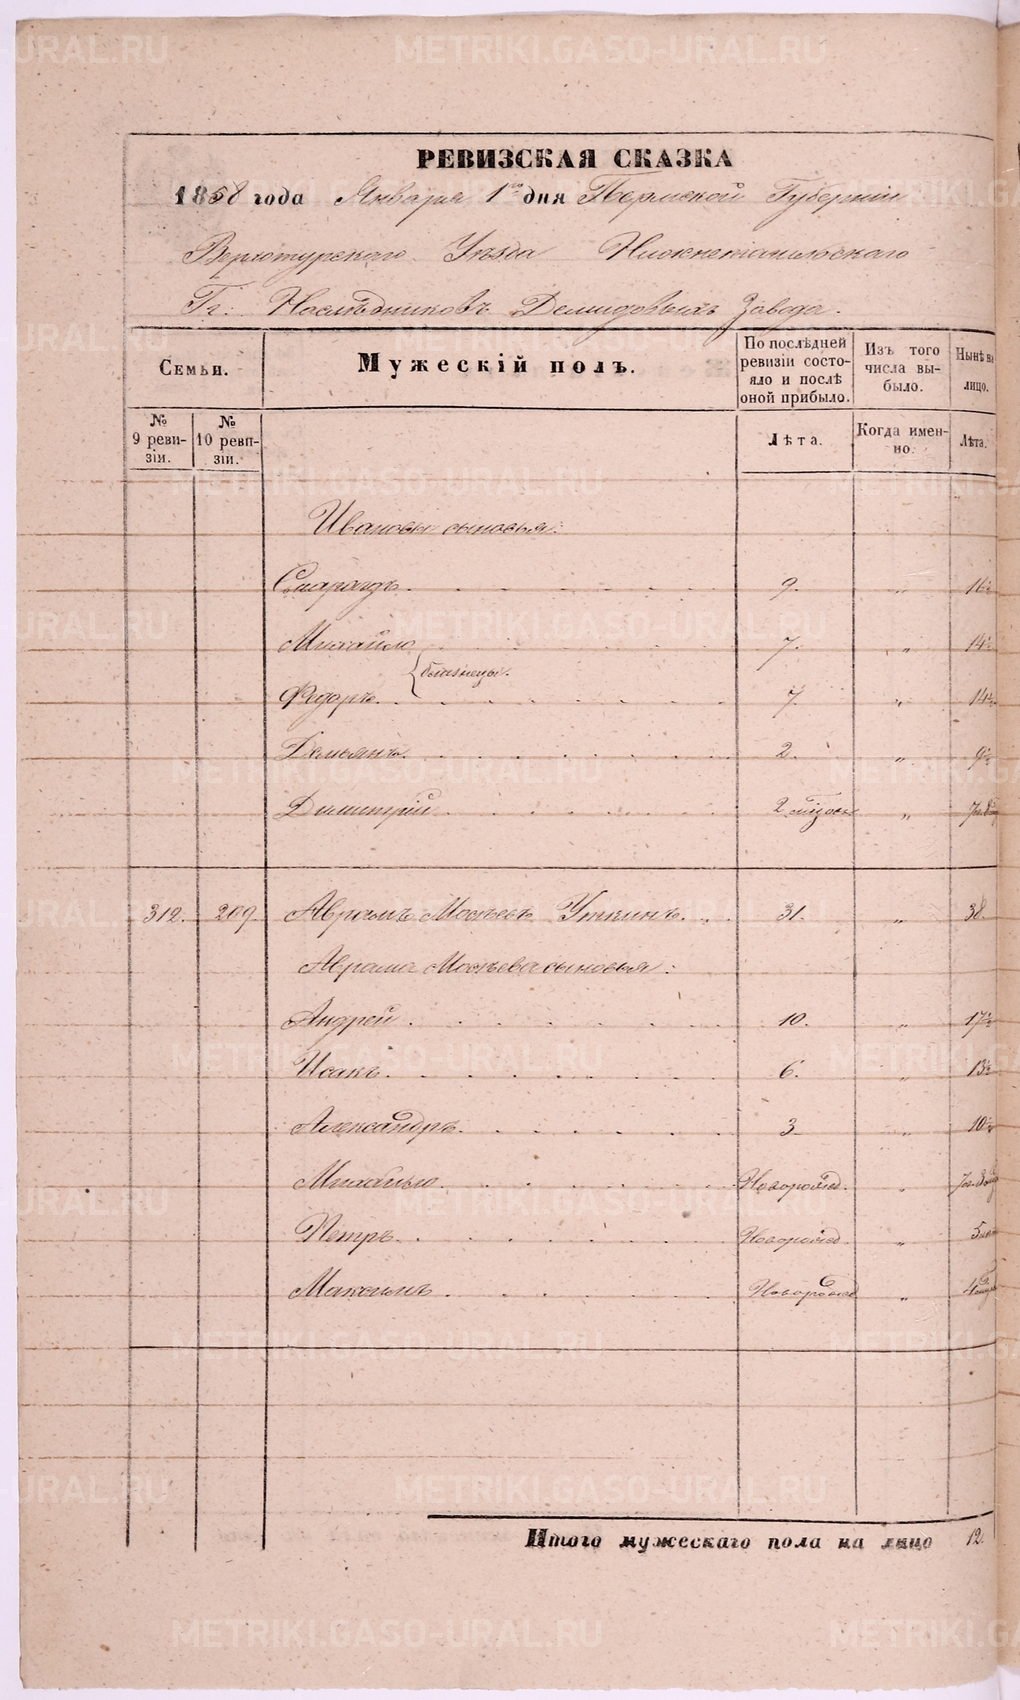 РЕВИЗСКАЯ СКАЗКА
1858 года Января 1го дня Пермской Губернии
Верхотурскаго Уѣзда Нижнетагильскаго
Гг: Наслѣдниковъ Демидовыхъ Завода.
Семьи.
Мужескій полъ.
По послѣдней ревизіи состо-
яло и послѣ
оной прибыло.
Изъ того
числа вы-
было.
Нынѣ на
лицо.
№
9 реви-
зіи.
№
10 реви-
зіи.
Лѣта.
Когда имен-
но.
Лѣта.
Ивановы сыновья:
Смарагдъ 9. „ 16½
Михайло 7. „ 14½
близнецы.
Федоръ 7. „ 14½
Демьянъ 2. „ 9½
Димитрій 2 „
312. 209. Аврамъ Мосѣевъ Уткинъ. 31. „ 38.
Аврама Мосѣева сыновья:
Андрей 10. „ 17½
Исакъ 6. „ 13½
Александръ 3 „ 10½
Новорожд. „
Петръ Новорожд. „
Максимъ Новорожд „
Итого мужескаго пола на лицо 12.
METRIKI.GASO-URAL.RU